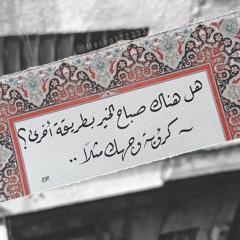 هل هناك صباح الخير بطريقة أخرى؟
~ كرؤية وجهك مثلاً ..